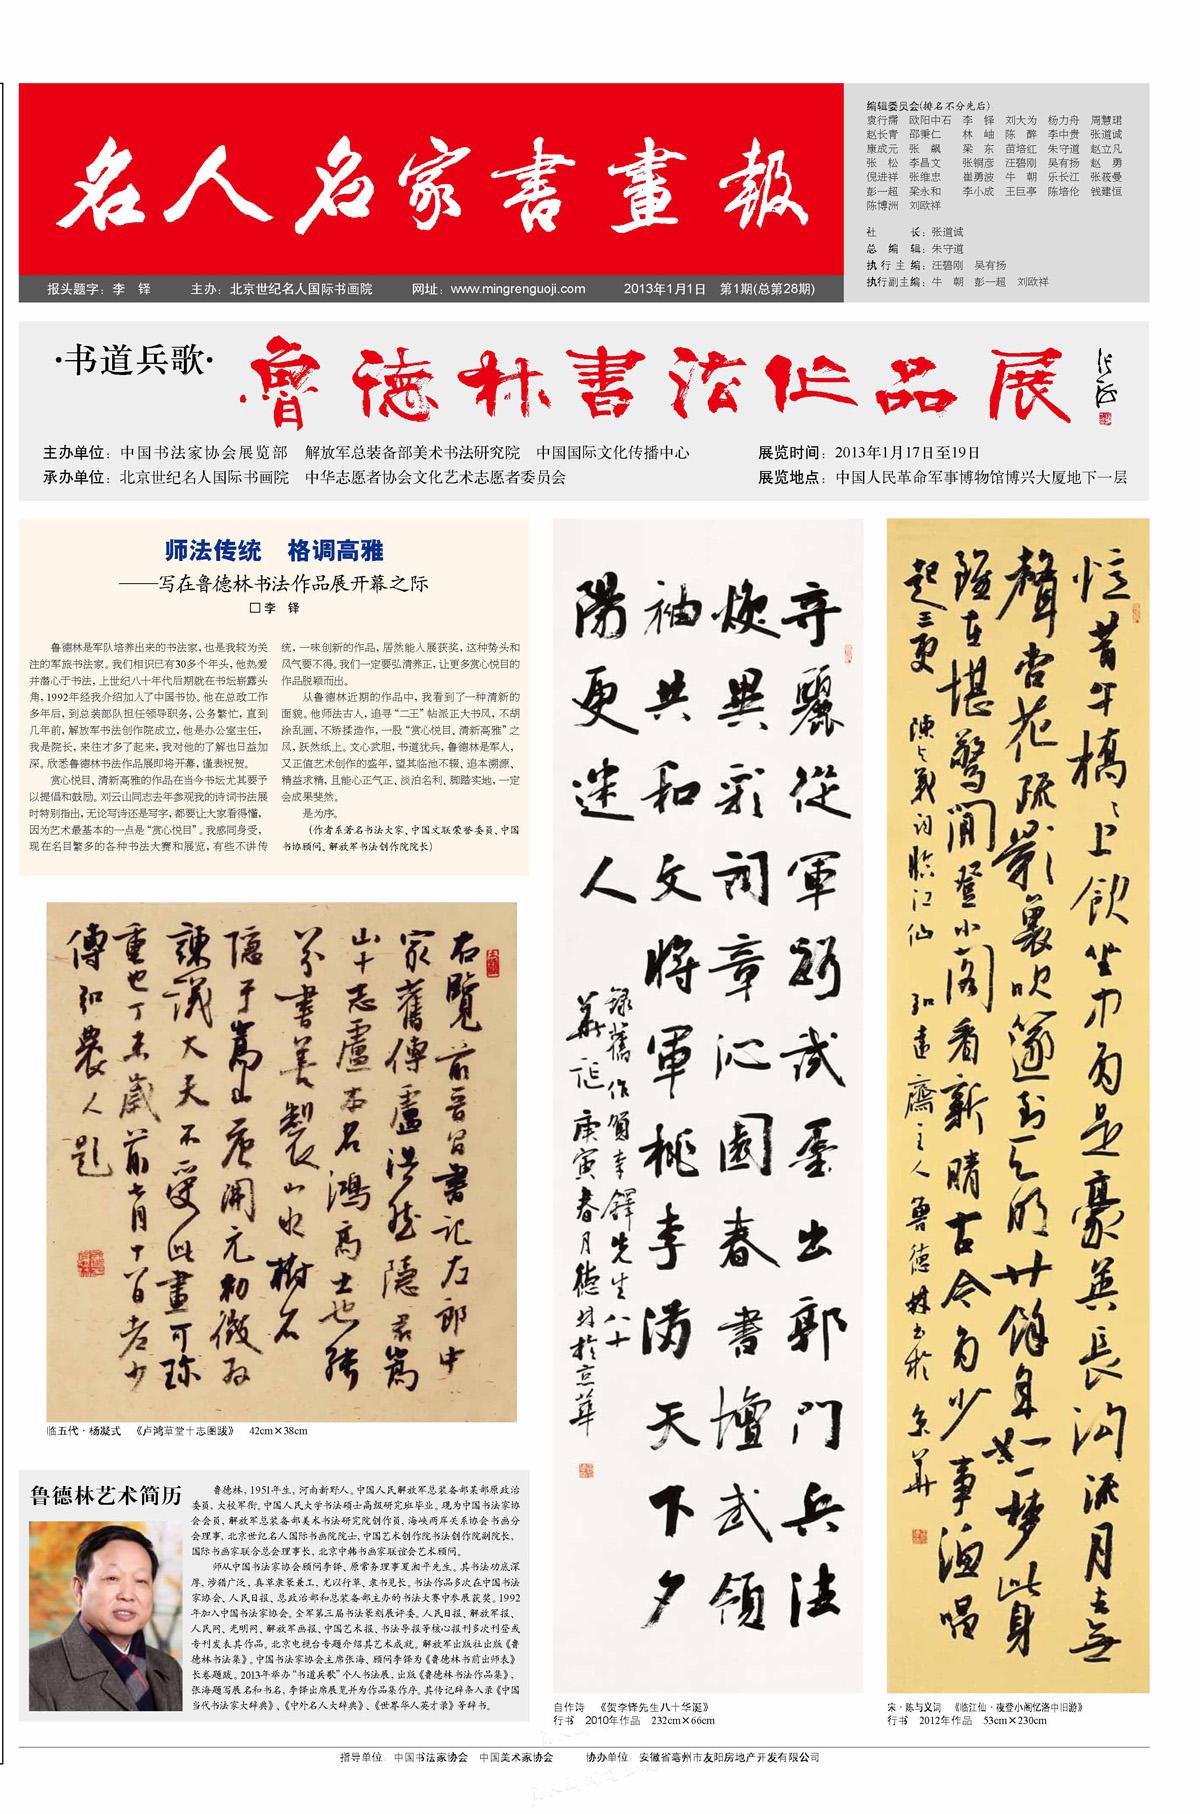 名人名家書畫報
报头题字：李　铎　　主办：北京世纪名人国际书画院　　网址：www.mingrenguoji.com　　2013年1月1日　第1期(总第28期)
编辑委员会(排名不分先后)
袁行霈　欧阳中石　李　铎　刘大为　杨力舟　周慧珺
赵长青　邵秉仁　林　岫　陈　醉　李中贵　张道诚
康成元　张　飙　梁　东　苗培红　朱守道　赵立凡
张　松　李昌文　张铜彦　汪碧刚　吴有扬　赵　勇
倪进祥　张维忠　崔勇波　牛　朝　乐长江　张筱曼
彭一超　梁永和　李小成　王巨亭　陈培伦　钱建恒
陈博洲　刘欧祥
社　　长：张道诚
总 编 辑：朱守道
执行主编：汪碧刚　吴有扬
执行副主编：牛　朝　彭一超　刘欧祥
·书道兵歌·
魯德林書法作品展
主办单位：中国书法家协会展览部　解放军总装备部美术书法研究院　中国国际文化传播中心
承办单位：北京世纪名人国际书画院　中华志愿者协会文化艺术志愿者委员会
展览时间：2013年1月17日至19日
展览地点：中国人民革命军事博物馆博兴大厦地下一层
师法传统　格调高雅
——写在鲁德林书法作品展开幕之际
□李　铎
鲁德林是军队培养出来的书法家，也是我较为关
注的军旅书法家。我们相识已有30多个年头，他热爱
并潜心于书法，上世纪八十年代后期就在书坛崭露头
角，1992年经我介绍加入了中国书协。他在总政工作
多年后，到总装部队担任领导职务，公务繁忙，直到
几年前，解放军书法创作院成立，他是办公室主任，
我是院长，来往才多了起来，我对他的了解也日益加
深。欣悉鲁德林书法作品展即将开幕，谨表祝贺。
赏心悦目、清新高雅的作品在当今书坛尤其要予
以提倡和鼓励。刘云山同志去年参观我的诗词书法展
时特别指出，无论写诗还是写字，都要让大家看得懂，
因为艺术最基本的一点是“赏心悦目”。我感同身受，
现在名目繁多的各种书法大赛和展览，有些不讲传
统，一味创新的作品，居然能入展获奖，这种势头和
风气要不得。我们一定要弘清养正，让更多赏心悦目的
作品脱颖而出。
从鲁德林近期的作品中，我看到了一种清新的
面貌。他师法古人，追寻“二王”帖派正大书风，不胡
涂乱画，不矫揉造作，一股“赏心悦目、清新高雅”之
风，跃然纸上。文心武胆，书道犹兵，鲁德林是军人，
又正值艺术创作的盛年，望其临池不辍、追本溯源、
精益求精，且能心正气正、淡泊名利、脚踏实地，一定
会成果斐然。
是为序。
（作者系著名书法大家、中国文联荣誉委员、中国
书协顾问、解放军书法创作院院长）
右覽前晉昌書記左郎中
家舊傳盧浩然隱居嵩
山十志盧本名鴻高士也能
八分書善製山水樹石
隱于嵩山唐開元初徵為
諫議大夫不受此畫可珍
重也丁未歲前七月十八日老少
傅弘農人題
临五代·杨凝式　《卢鸿草堂十志图跋》　42cm×38cm
奇驪從軍躬武墨出郭門兵法
煥異彩詞章沁園春書壇武領
袖共和文將軍桃李滿天下夕
陽更迷人
録舊作賀李鐸先生八十
華誕庚寅春月德林於京華
自作诗　《贺李铎先生八十华诞》
行书　2010年作品　232cm×66cm
憶昔午橋橋上飲坐中多是豪英長溝流月去無
聲杏花疏影裏吹笛到天明廿餘年如一夢此身
雖在堪驚閒登小閣看新晴古今多少事漁唱
起三更　陳與義詞臨江仙　弘遠齋主人魯德林書於京華
宋·陈与义词　《临江仙·夜登小阁忆洛中旧游》
行书　2012年作品　53cm×230cm
鲁德林艺术简历
鲁德林，1951年生，河南新野人。中国人民解放军总装备部某部原政治
委员，大校军衔。中国人民大学书法硕士高级研究班毕业。现为中国书法家协
会会员，解放军总装备部美术书法研究院创作员，海峡两岸关系协会书画分
会理事，北京世纪名人国际书画院院士，中国艺术创作院书法创作院副院长，
国际书画家联合总会理事长，北京中韩书画家联谊会艺术顾问。
师从中国书法家协会顾问李铎、原常务理事夏湘平先生。其书法功底深
厚，涉猎广泛，真草隶篆兼工，尤以行草、隶书见长。书法作品多次在中国书法
家协会、人民日报、总政治部和总装备部主办的书法大赛中参展获奖。1992
年加入中国书法家协会。全军第三届书法篆刻展评委。人民日报、解放军报、
人民网、光明网、解放军画报、中国艺术报、书法导报等核心报刊多次刊登或
专刊发表其作品。北京电视台专题介绍其艺术成就。解放军出版社出版《鲁
德林书法集》。中国书法家协会主席张海、顾问李铎为《鲁德林书前出师表》
长卷题跋。2013年举办“书道兵歌”个人书法展，出版《鲁德林书法作品集》，
张海题写展名和书名，李铎出席展览并为作品集作序。其传记辞条入录《中国
当代书法家大辞典》、《中外名人大辞典》、《世界华人英才录》等辞书。
指导单位　中国书法家协会　中国美术家协会　　协办单位　安徽省亳州市友阳房地产开发有限公司